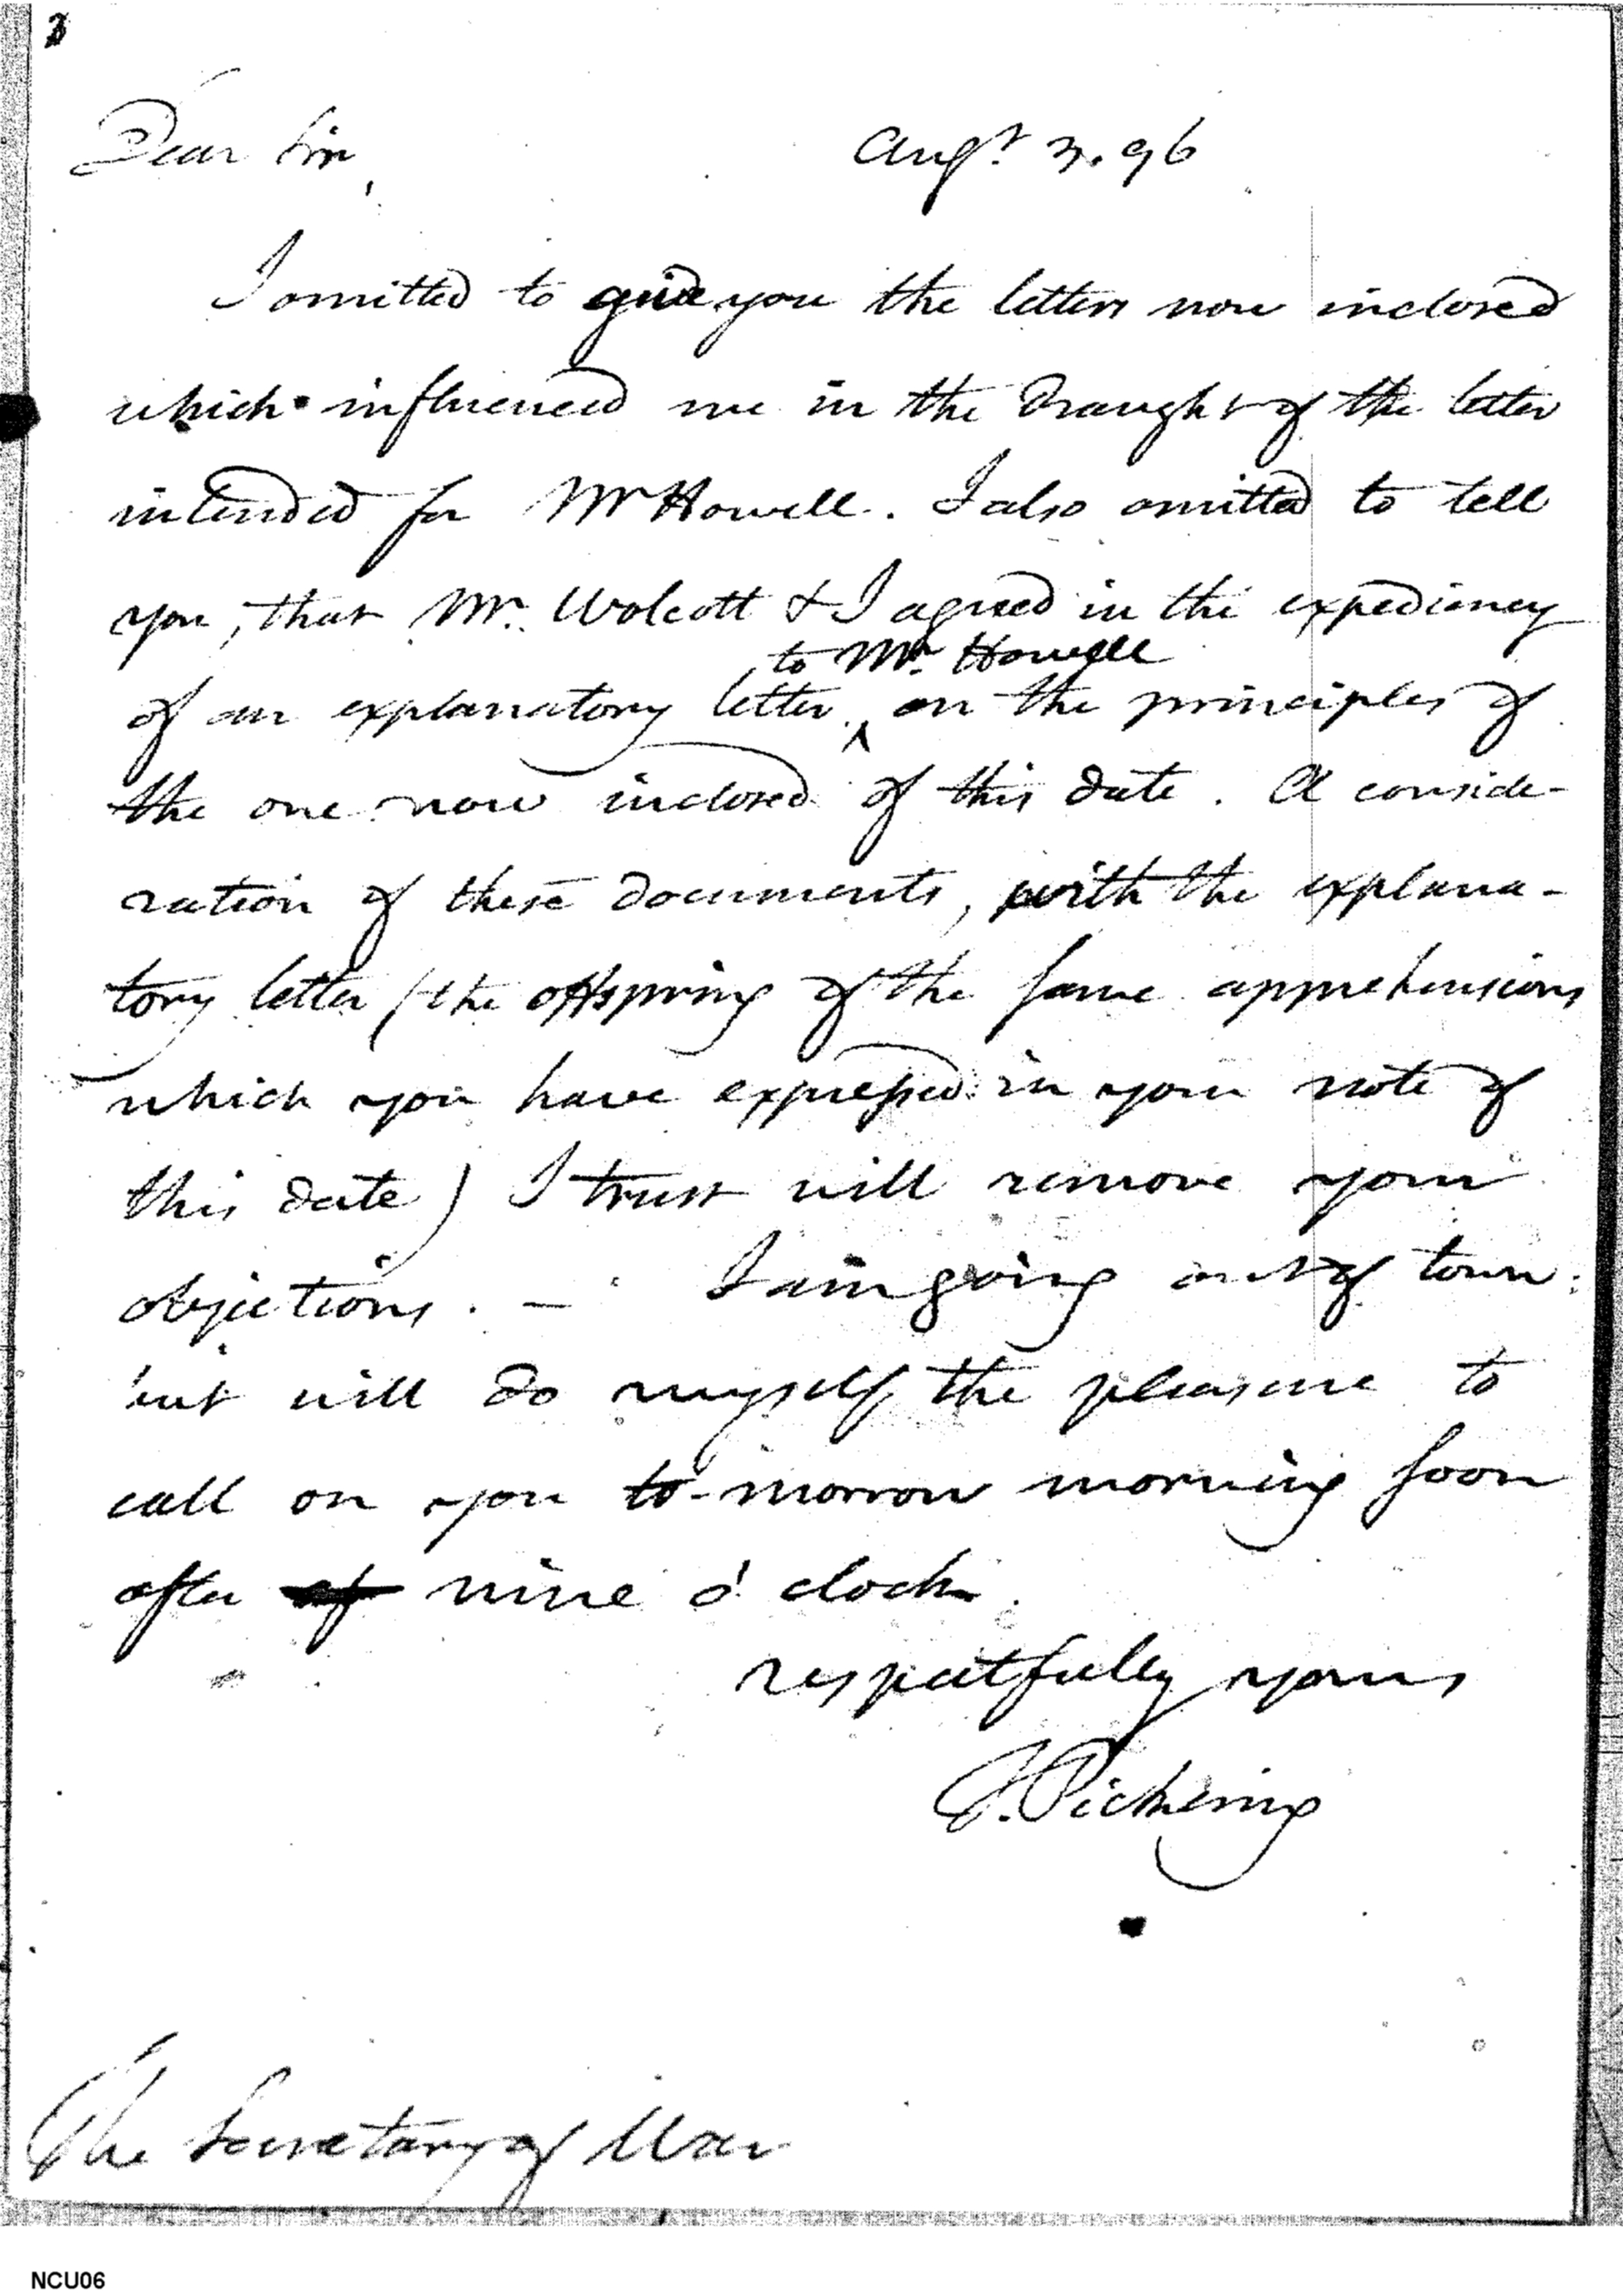 3
Dear Sir, Augt. 3. 96
I omitted to give you the letters now inclosed
which influenced me in the draught of the letter
intended for Mr Howell. I also omitted to tell
you, that Mr. Wolcott & I agreed in the expediency
to Mr. Howell
of an explanatory letter ^ on the principles of
the one now inclosed of this date. A conside-
ration of these documents, with the explana-
tory letter (the offspring of the same apprehensions
which you have expressed in your note of
this date) I trust will remove your
objections. — I am going out of town:
but will do myself the pleasure to
call on you to-morrow morning soon
after nine o'clock.
respectfully yours
T. Pickering
The Secretary of War
NCU06